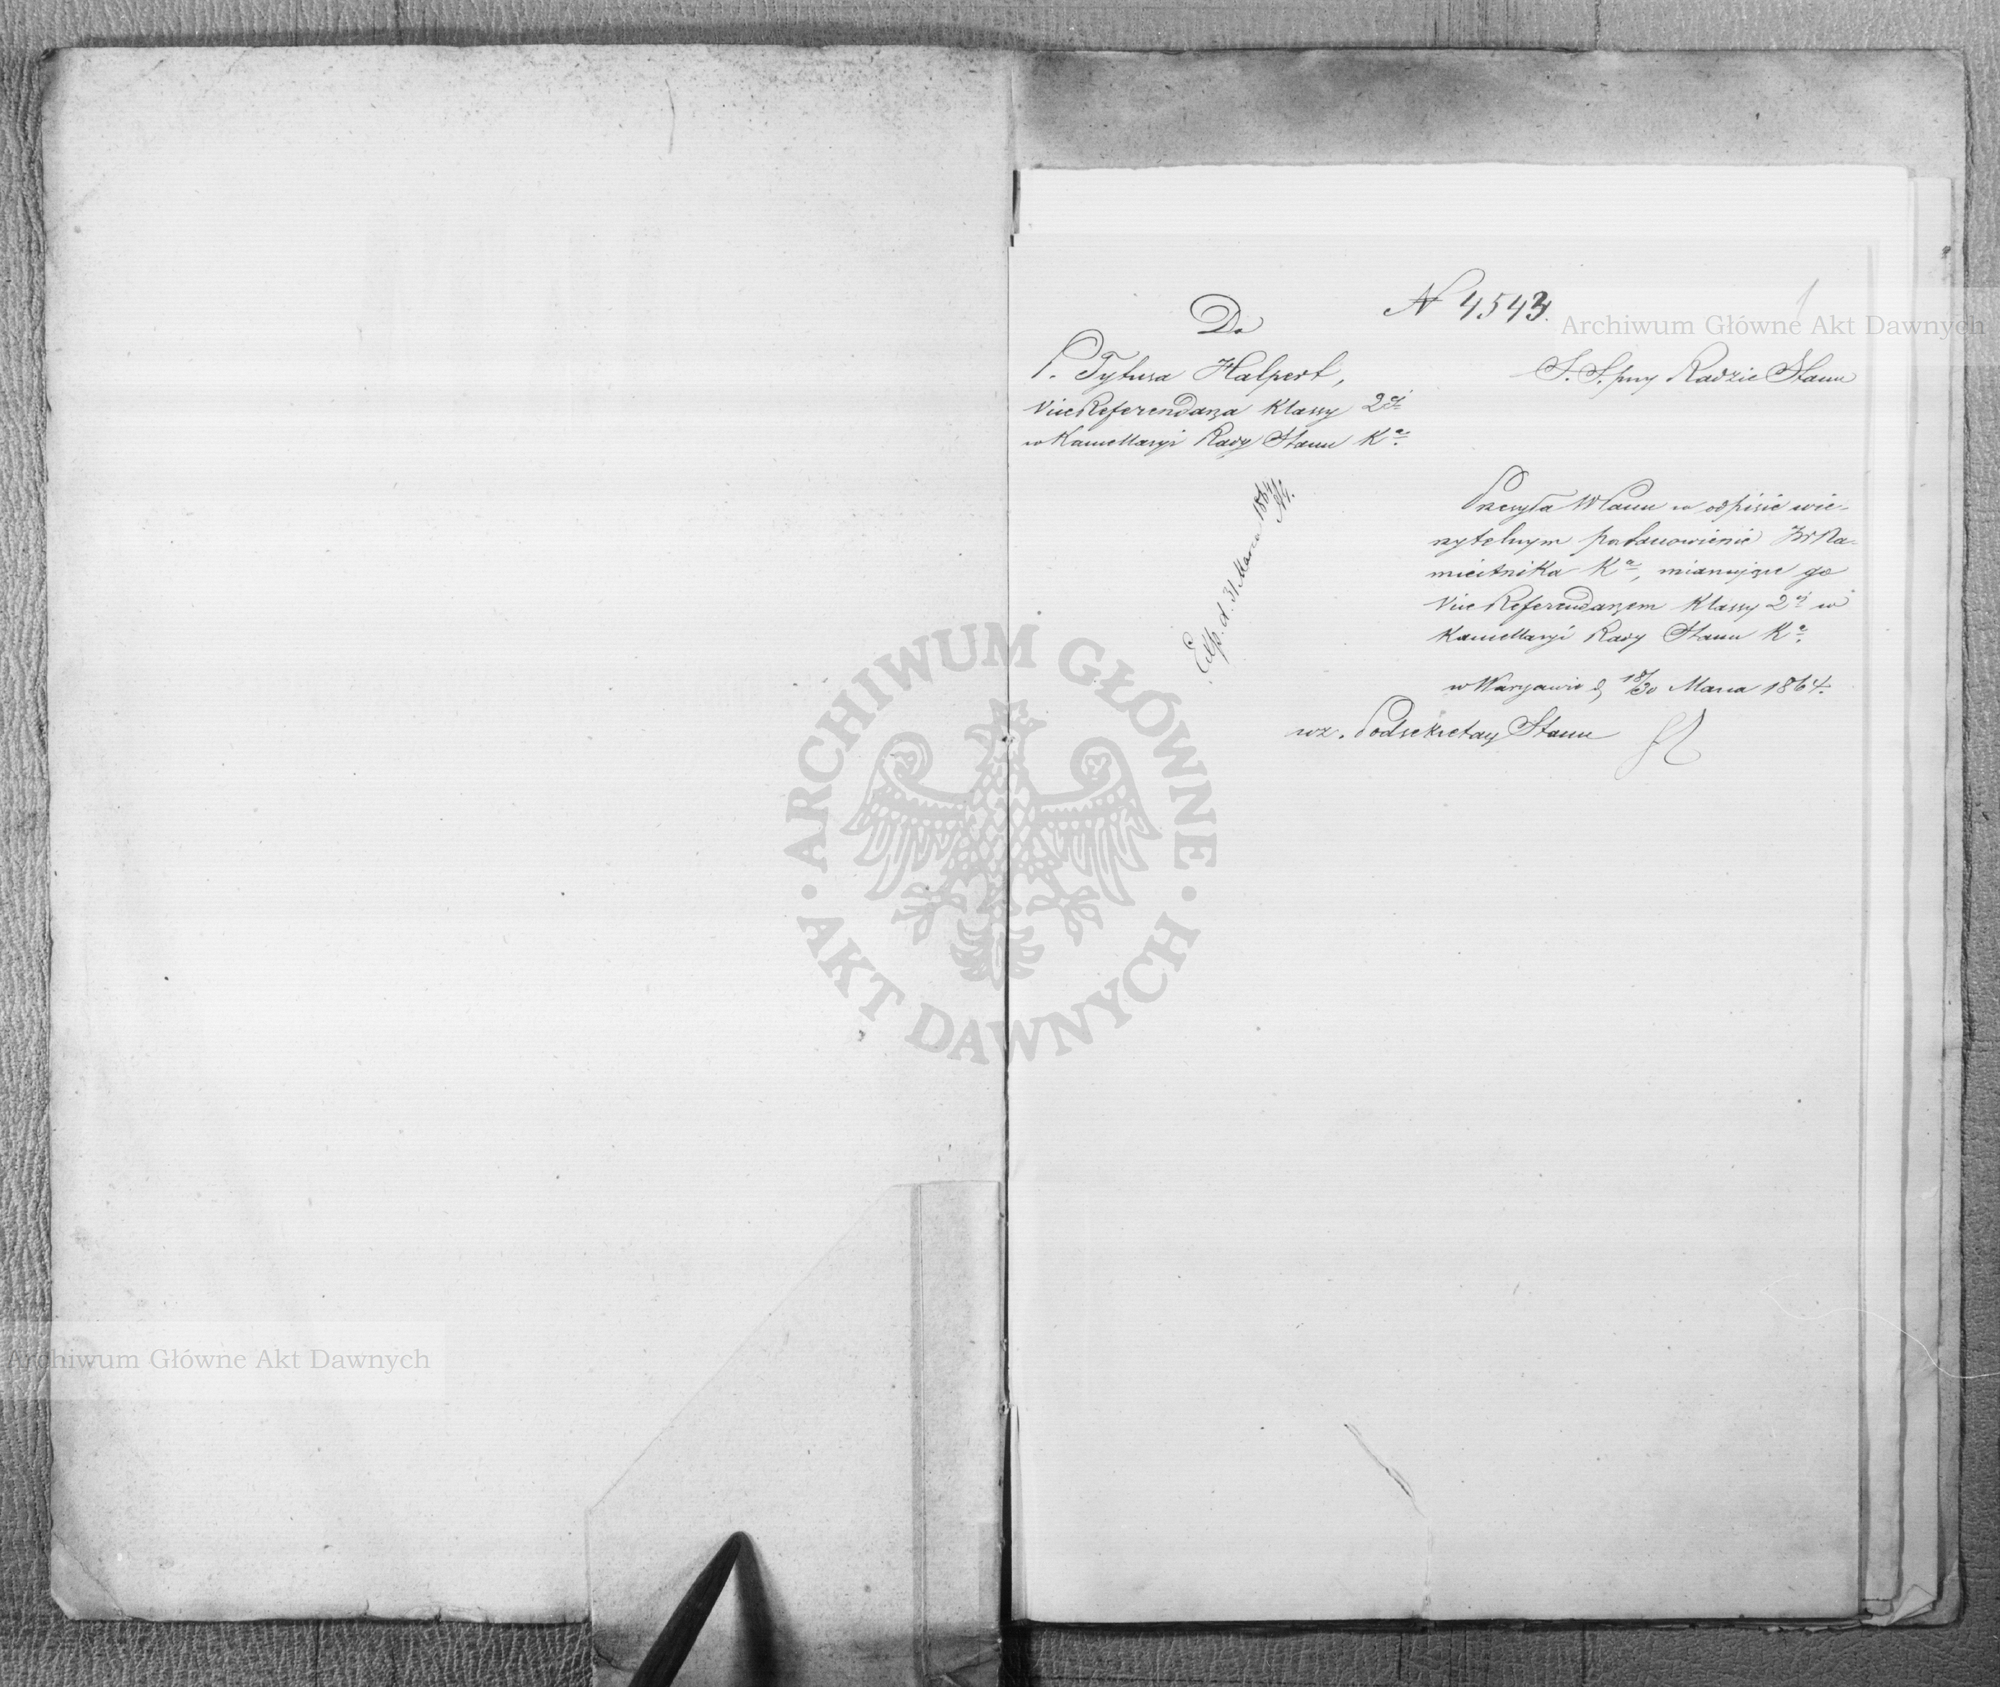 N 4543.
1
Do
P. Tytusa Halpert,
Vice Referendarza Klassy 2ej
w Kancellaryi Rady Stanu Ka.
S. S. przy Radzie Stanu
Przesyła WPanu w odpisie wie-
rzytelnym postanowienie JWNa-
miestnika Ka, mianujące go
Vice Referendarzem Klassy 2ej w
Kancellaryi Rady Stanu Ka.
w Warszawie d. 18/30 Marca 1864.
wz. Podsekretarz Stanu
Exp. d. 31 Marca 1864
Archiwum Główne Akt Dawnych
ARCHIWUM GŁÓWNE
· AKT DAWNYCH ·
Archiwum Główne Akt Dawnych